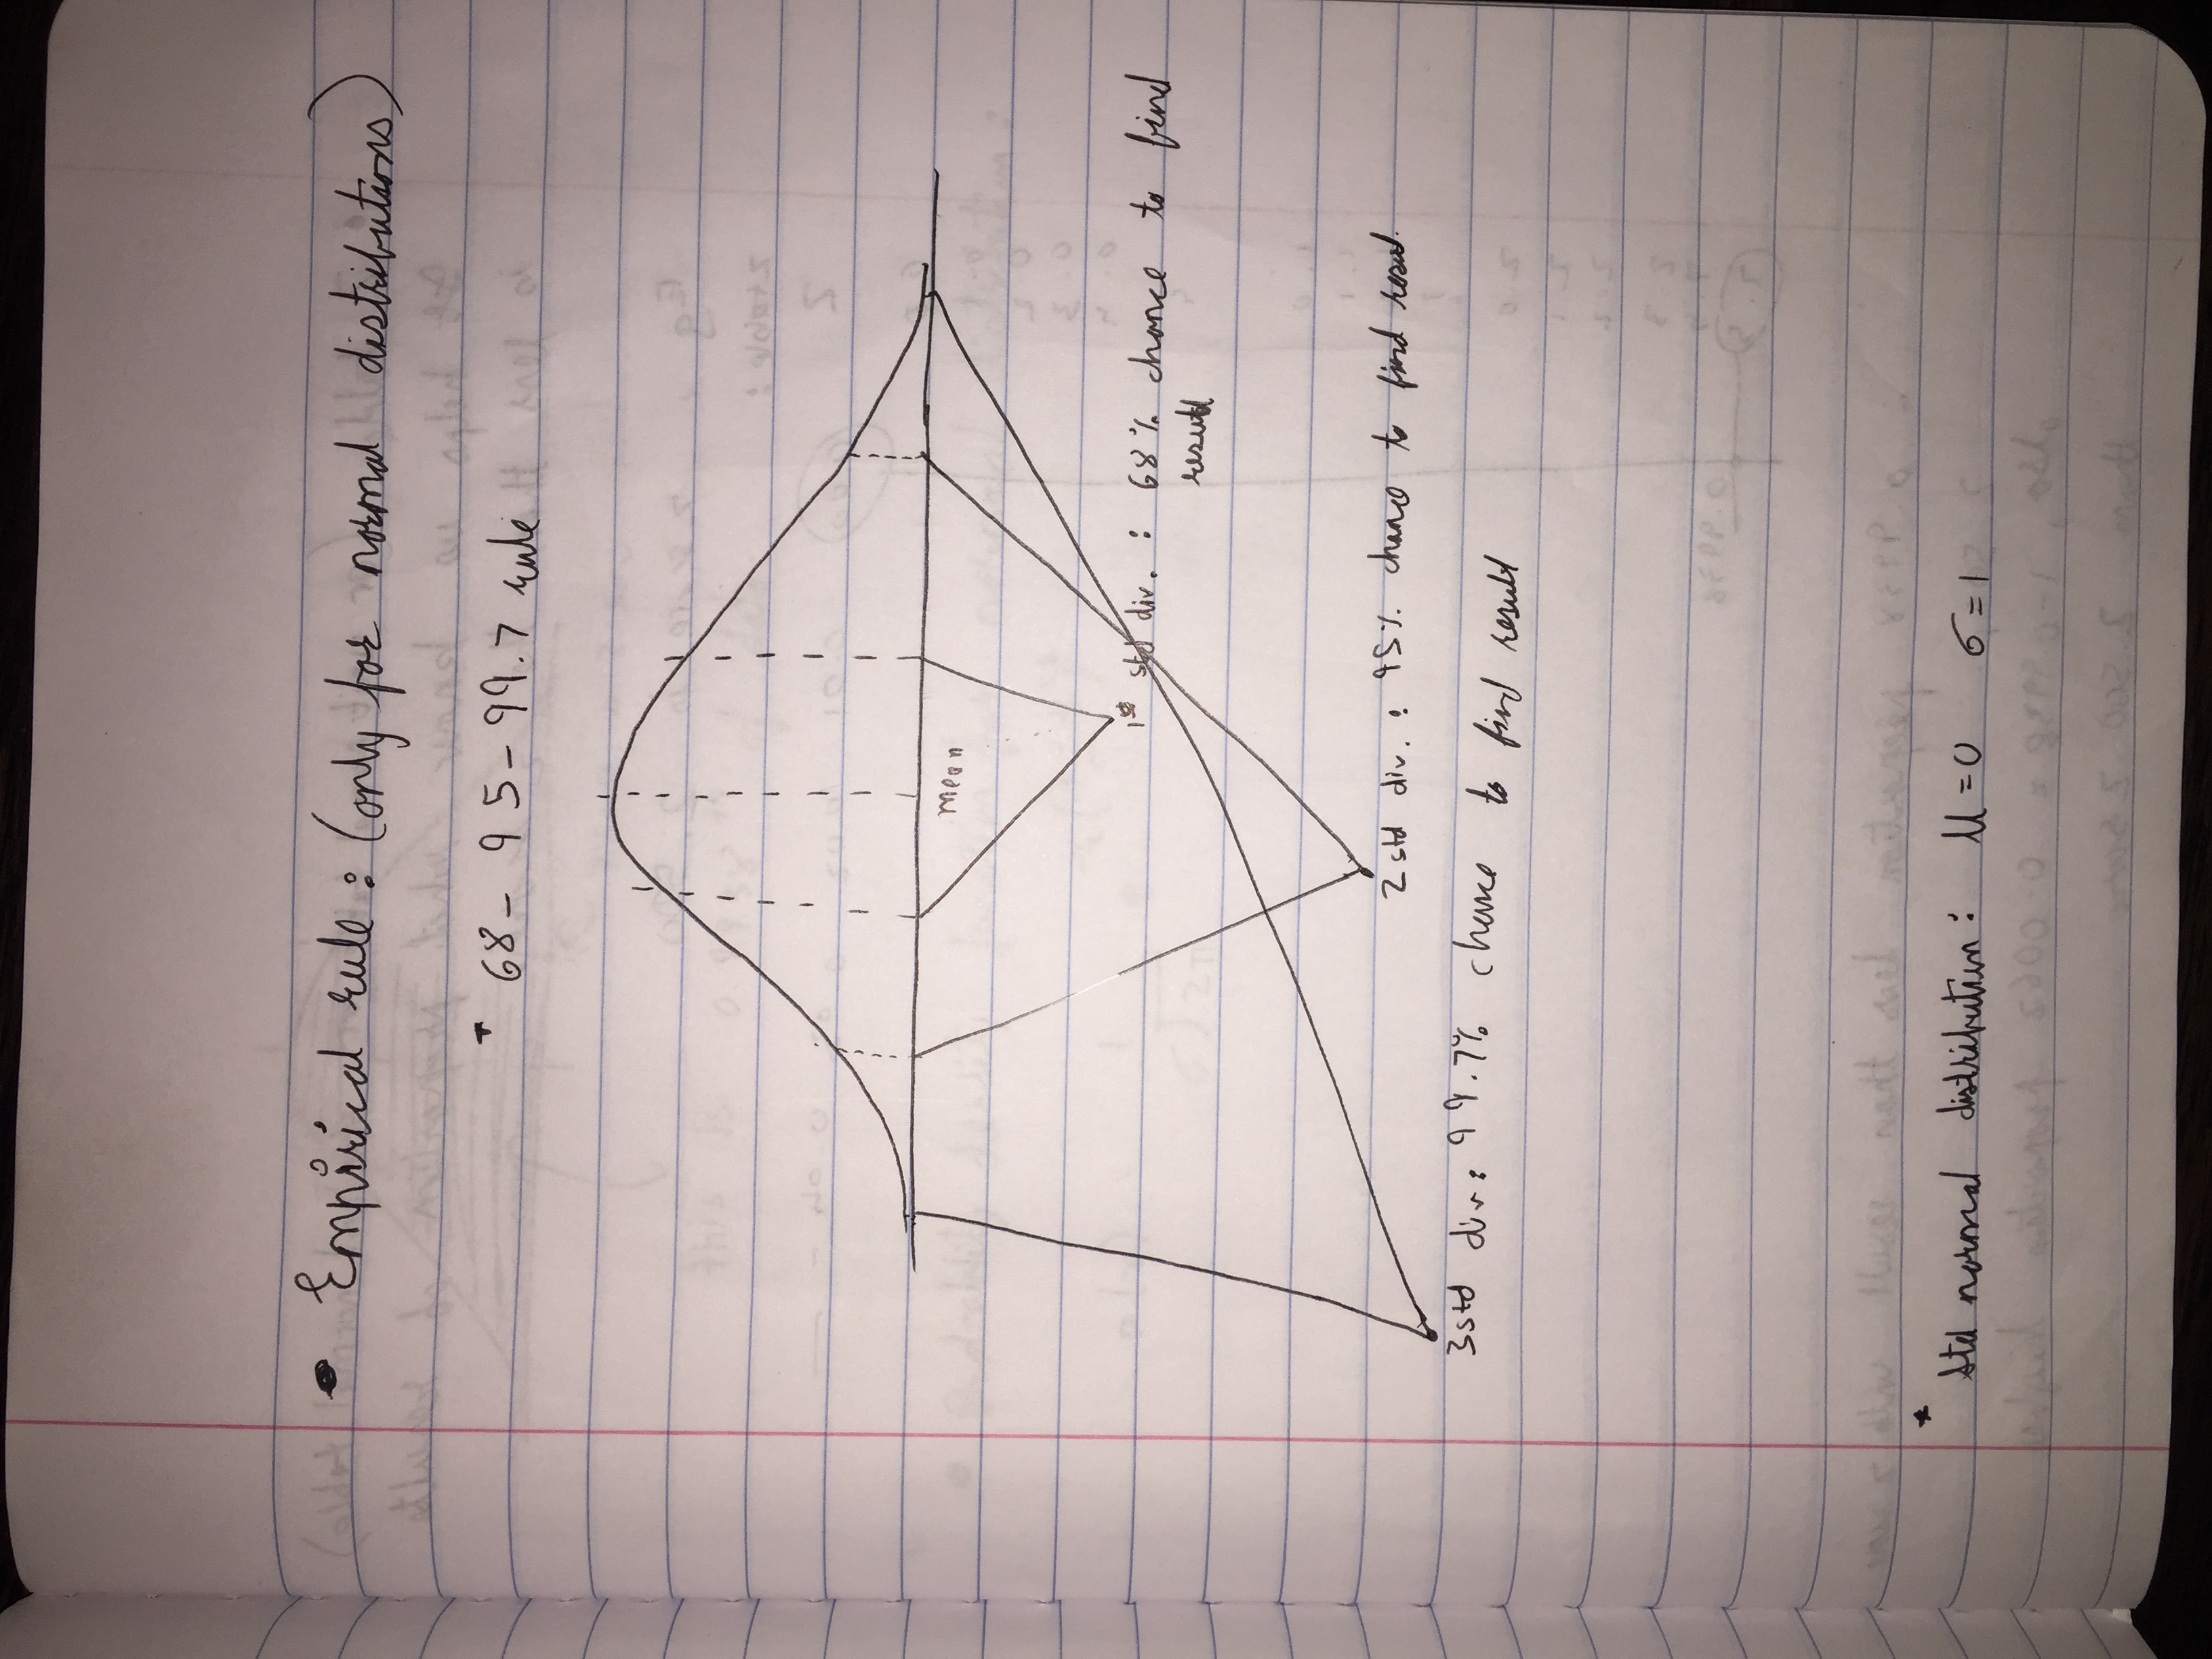 • Empirical rule : (only for normal distributions)
* 68 - 95 - 99.7 rule
mean
1st std div. : 68% chance to find
result
2 std div. : 95% chance to find resul.
3 std div : 99.7% chance to find result
* Std normal distribution : μ = 0 σ = 1